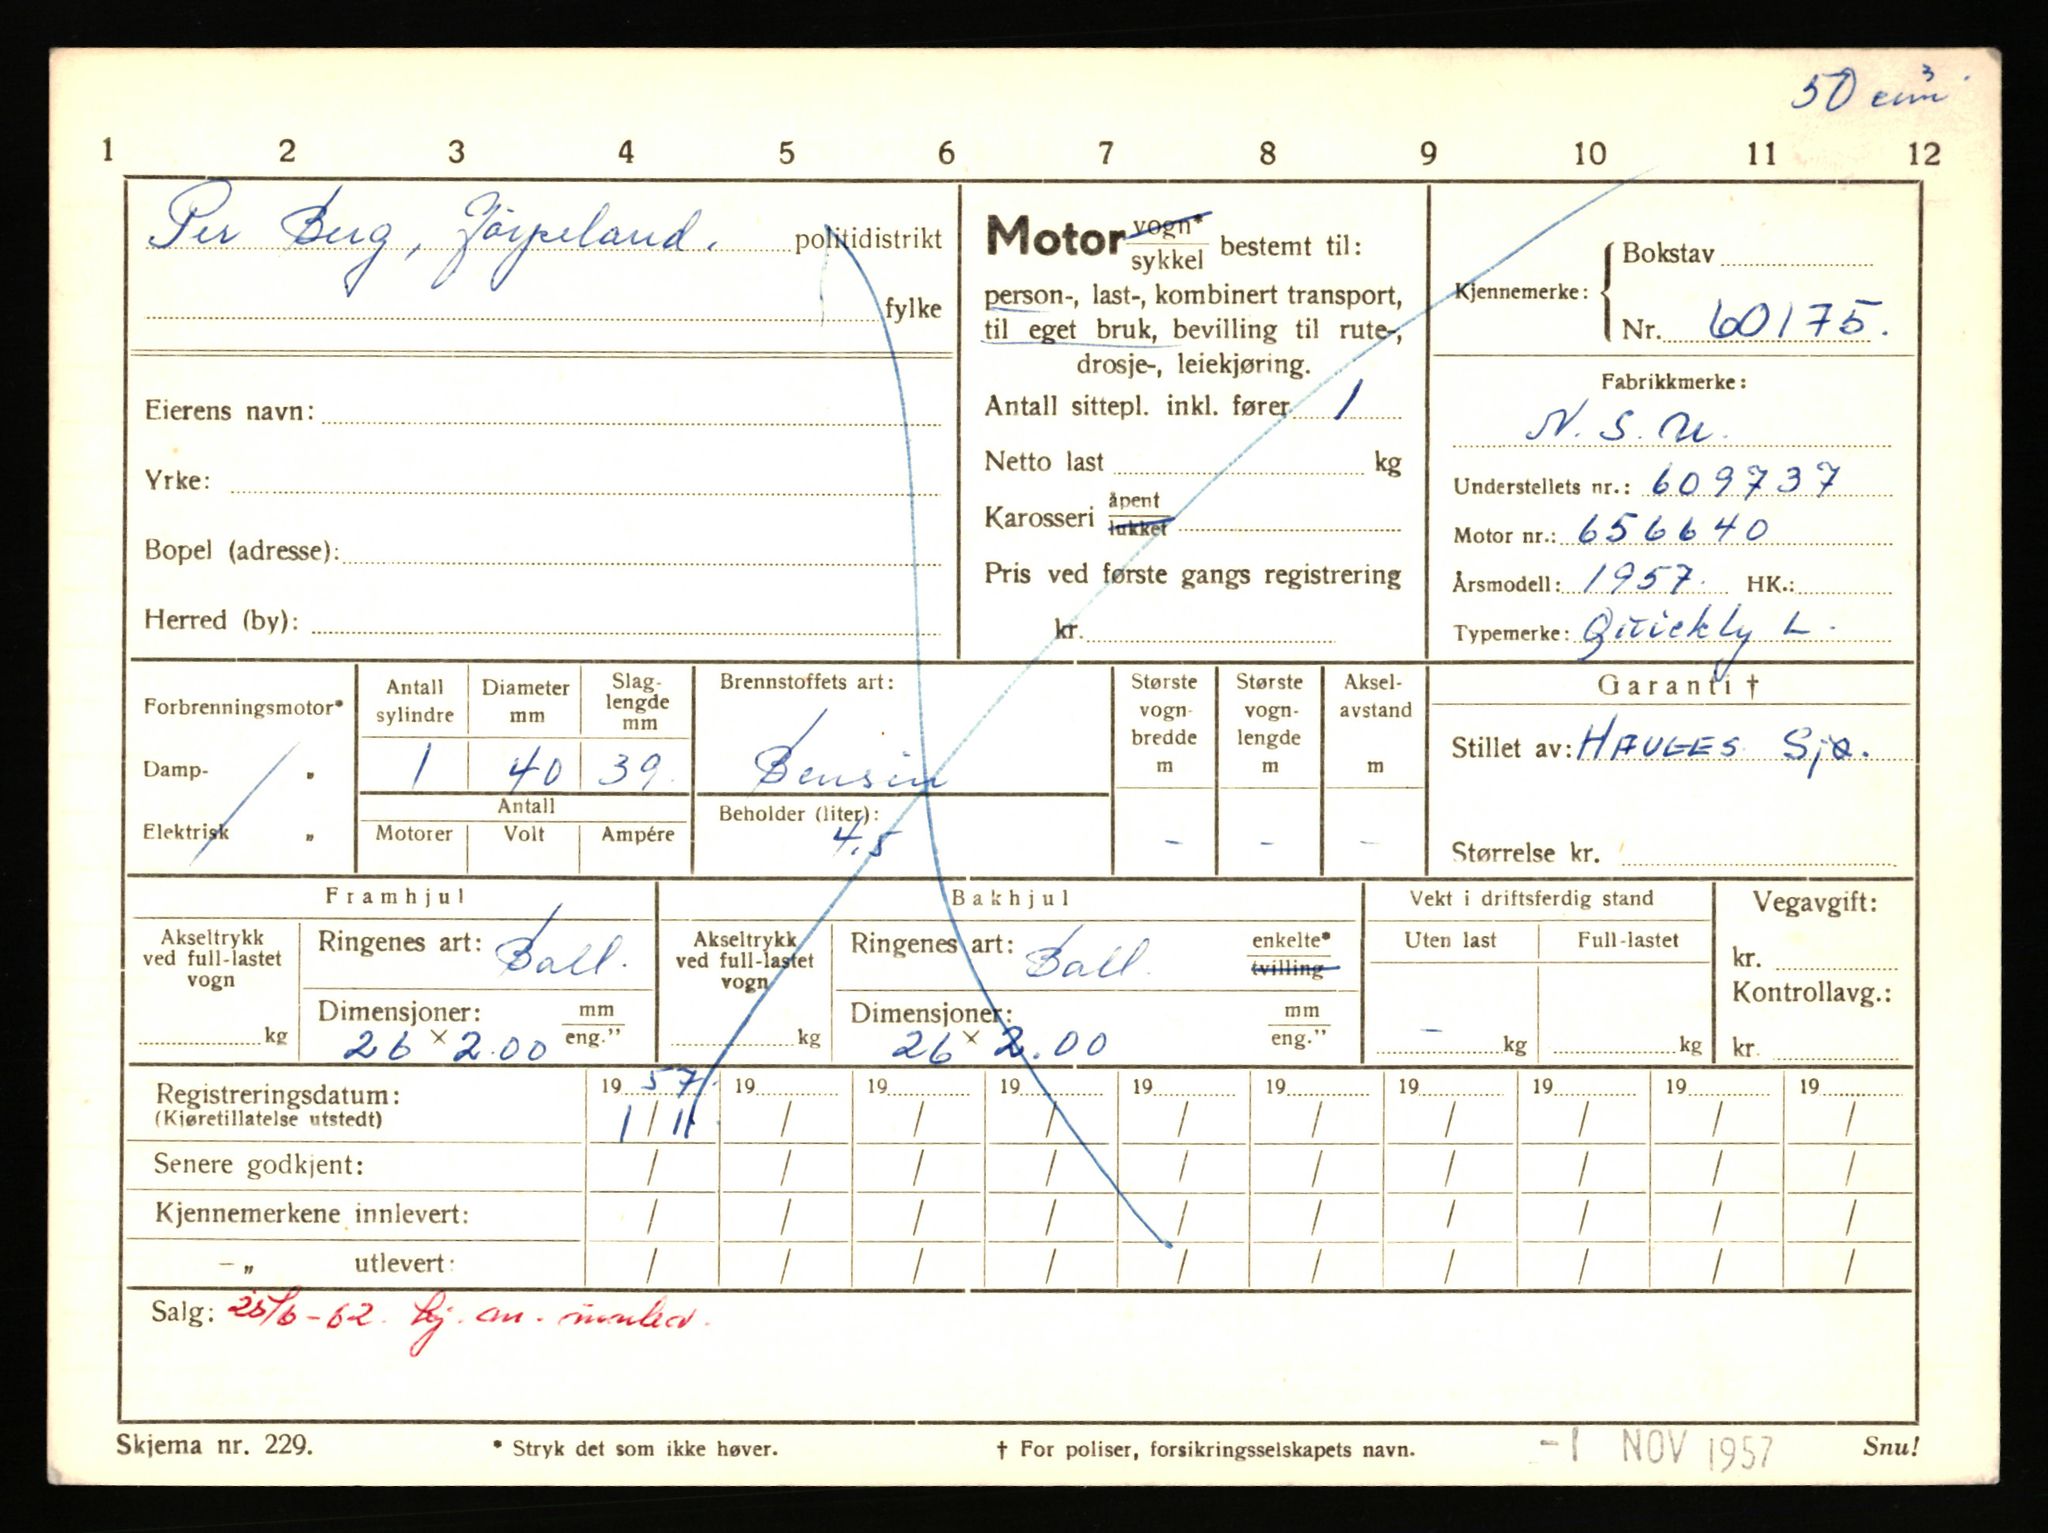 50 cm³
1 2 3 4 5 6 7 8 9 10 11 12
Per Berg, Jörpeland. politidistrikt
fylke
Eierens navn:
Yrke:
Bopel (adresse):
Herred (by):
Motor vogn* sykkel bestemt til:
person-, last-, kombinert transport,
til eget bruk, bevilling til rute-,
drosje-, leiekjøring.
Antall sittepl. inkl. fører 1
Netto last kg
Karosseri åpent lukket
Pris ved første gangs registrering
kr.
Kjennemerke: Bokstav
Nr. 60175.
Fabrikkmerke:
N. S. U.
Understellets nr.: 609737
Motor nr.: 656640
Årsmodell: 1957. HK.:
Typemerke: Quickly L.
Forbrenningsmotor*
Damp- „
Elektrisk „
Antall sylindre
Diameter mm
Slag-lengde mm
1 40 39.
Antall
Motorer Volt Ampére
Brennstoffets art:
Bensin
Beholder (liter):
4,5
Største vogn-bredde m
Største vogn-lengde m
Aksel-avstand m
- - -
Garanti †
Stillet av: HAUGES Sjø.
Størrelse kr.
Framhjul
Akseltrykk ved full-lastet vogn
kg
Ringenes art: Ball.
Dimensjoner: mm eng.”
26 × 2.00
Bakhjul
Akseltrykk ved full-lastet vogn
kg
Ringenes art: Ball. enkelte* tvilling
Dimensjoner: mm eng.”
26 × 2.00
Vekt i driftsferdig stand
Uten last Full-lastet
- kg kg
Vegavgift:
kr.
Kontrollavg.:
kr.
Registreringsdatum: 19 57. 19 19 19 19 19 19 19 19 19
(Kjøretillatelse utstedt) 1 / 11. / / / / / / / / /
Senere godkjent: / / / / / / / / / /
Kjennemerkene innlevert: / / / / / / / / / /
— „ utlevert: / / / / / / / / / /
Salg: 25/6-62. kj. an. innlev.
Skjema nr. 229. * Stryk det som ikke høver. † For poliser, forsikringsselskapets navn. -1 NOV 1957 Snu!